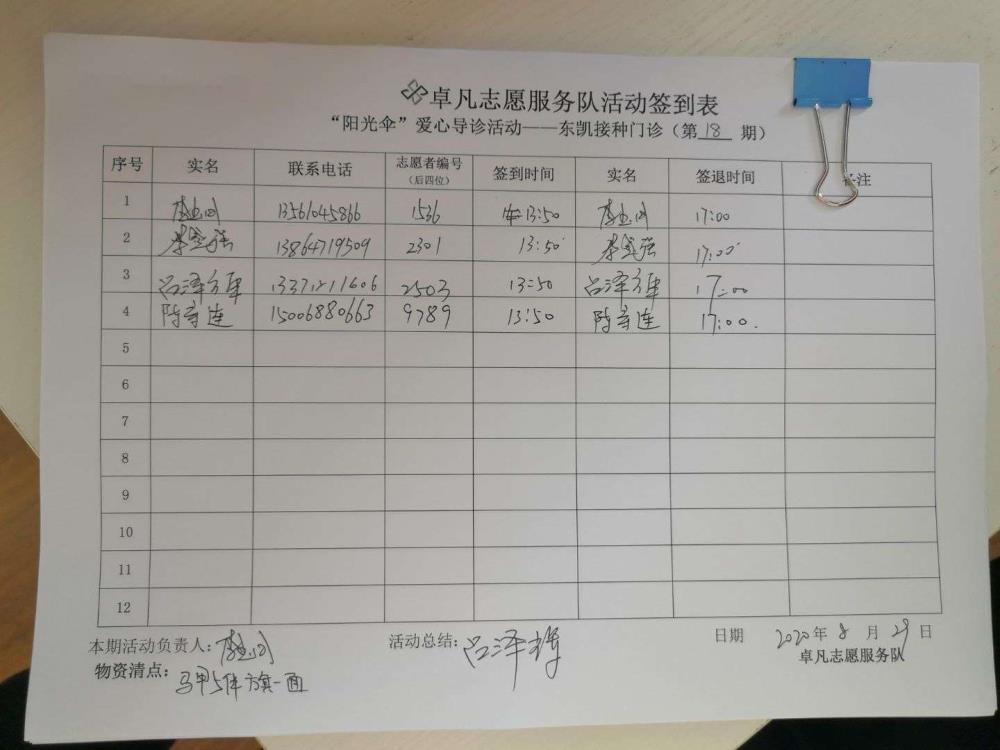 卓凡志愿服务队活动签到表
“阳光伞”爱心导诊活动——东凯接种门诊（第 18 期）
序号 实名 联系电话 志愿者编号（后四位） 签到时间 实名 签退时间 备注
1 13561045866 1536 13:50 17:00
2 13864719509 2301 13:50 17:00
3 吕泽方军 13371211606 2503 13:50 吕泽方军 17:00
4 15006880663 9789 13:50 17:00.
5
6
7
8
9
10
11
12
本期活动负责人： 活动总结： 日期 2020年 8 月 29 日
物资清点： 马甲5件 旗一面 卓凡志愿服务队